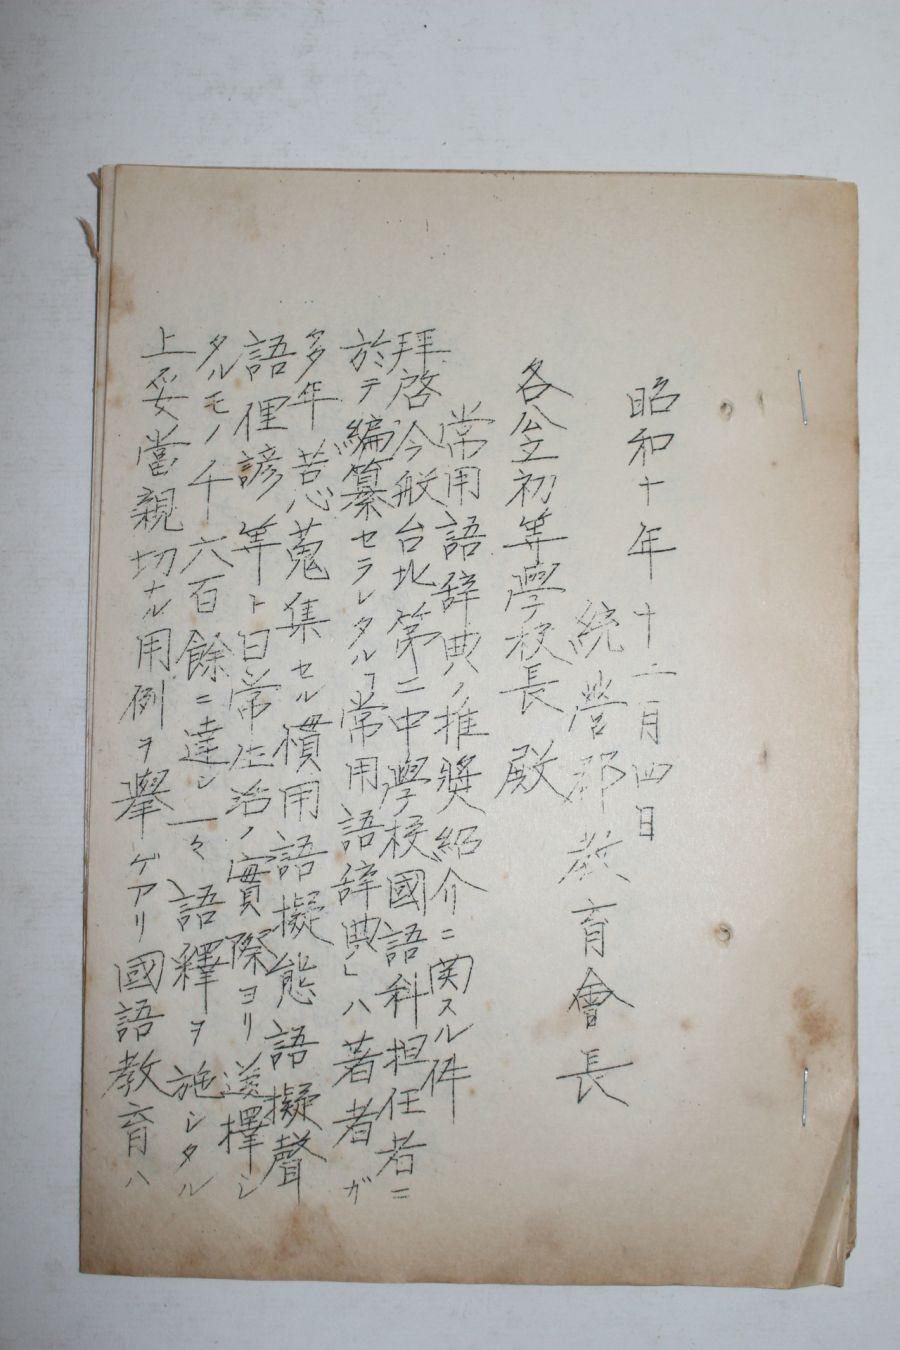 昭和十年十二月四日
統營郡教育會長
各公立初等學校長殿
常用語辞典ノ推奬紹介ニ関スル件
拜啓今般台北第二中學校國語科担任者ニ
於テ編纂セラレタル「常用語辞典」ハ著者ガ
多年苦心蒐集セル慣用語擬態語擬聲
語俚諺等ト日常生活ノ實際ヨリ選擇シ
タルモノ千六百餘ニ達シ一々語釋ヲ施シタル
上妥當親切ナル用例ヲ擧ゲアリ國語教育ハ